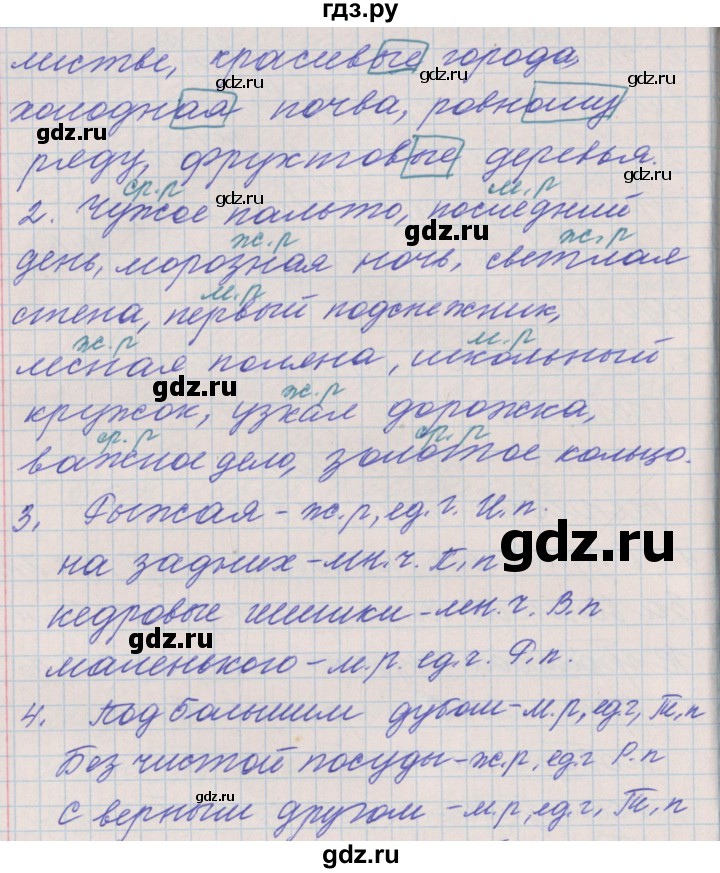 гдз.ру
листве, красивые города,
холодная почва, ровному
ряду, фруктовые деревья.
ср.р м.р
2. Чужое пальто, последний
ж.р ж.р
день, морозная ночь, светлая
м.р
стена, первый подснежник,
ж.р м.р
лесная поляна, школьный
ж.р
кружок, узкая дорожка,
ср.р ср.р
важное дело, золотое кольцо.
3. Рыжая - ж.р, ед.ч. И.п.
на задних - мн.ч. П.п
кедровые шишки - мн.ч. В.п
маленького - м.р. ед.ч. Р.п.
4. Под большим дубом - м.р, ед.ч, Т.п
Без чистой посуды - ж.р, ед.ч Р.п
с верным другом - м.р, ед.ч, Т.п
gdz.ru